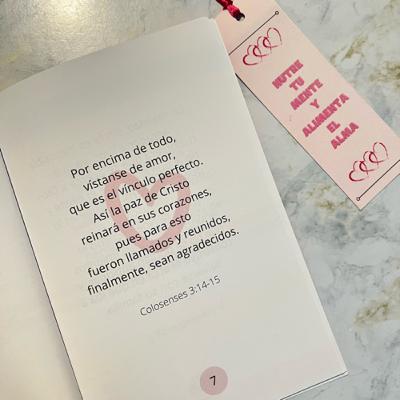 Por encima de todo,
vístanse de amor,
que es el vínculo perfecto.
Así la paz de Cristo
reinará en sus corazones,
pues para esto
fueron llamados y reunidos,
finalmente, sean agradecidos.
Colosenses 3:14-15
7
NUTRE
TU
MENTE
Y
ALIMENTA
EL
ALMA